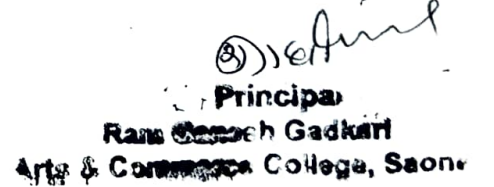 Principal
Ram Ganesh Gadkari
Arts & Commerce College, Saone